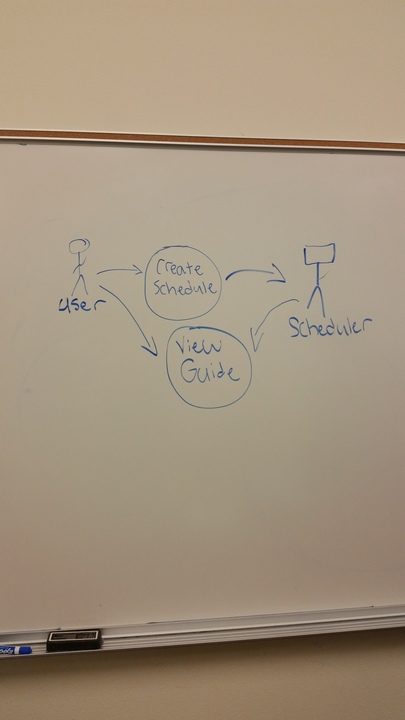 User
Create
Schedule
Scheduler
View
Guide